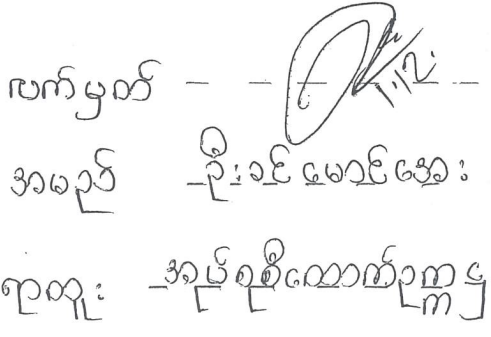 လက်မှတ် - -
အမည် - ဦးခင်မောင်အေး
ရာထူး - အုပ်စုစိုထောက်ဥက္ကဋ္ဌ